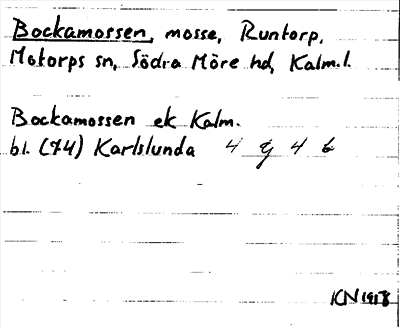 Bockamossen, mosse, Runtorp,
Motorps sn, Södra Möre hd, Kalm. l.
Bockamossen ek Kalm.
bl. (74) Karlslunda 4 g 4 b
KN 1918